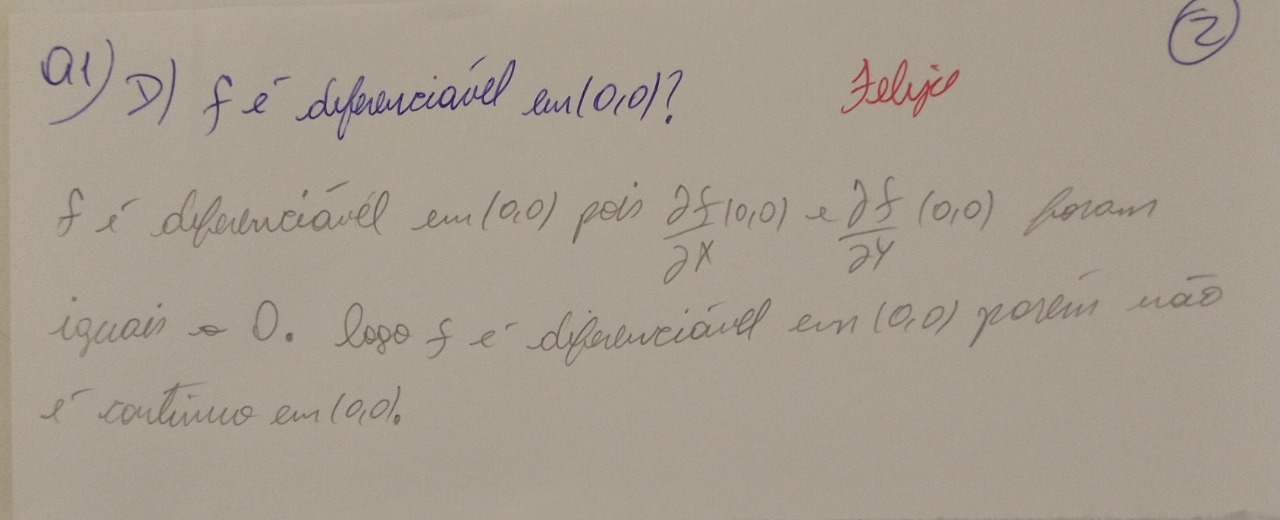 ②
Q1) D) f é diferenciável em (0,0)? Felipe
f é diferenciável em (0,0) pois ∂f/∂x (0,0) e ∂f/∂y (0,0) foram
iguais a 0. logo f é diferenciável em (0,0) porém não
é contínuo em (0,0).